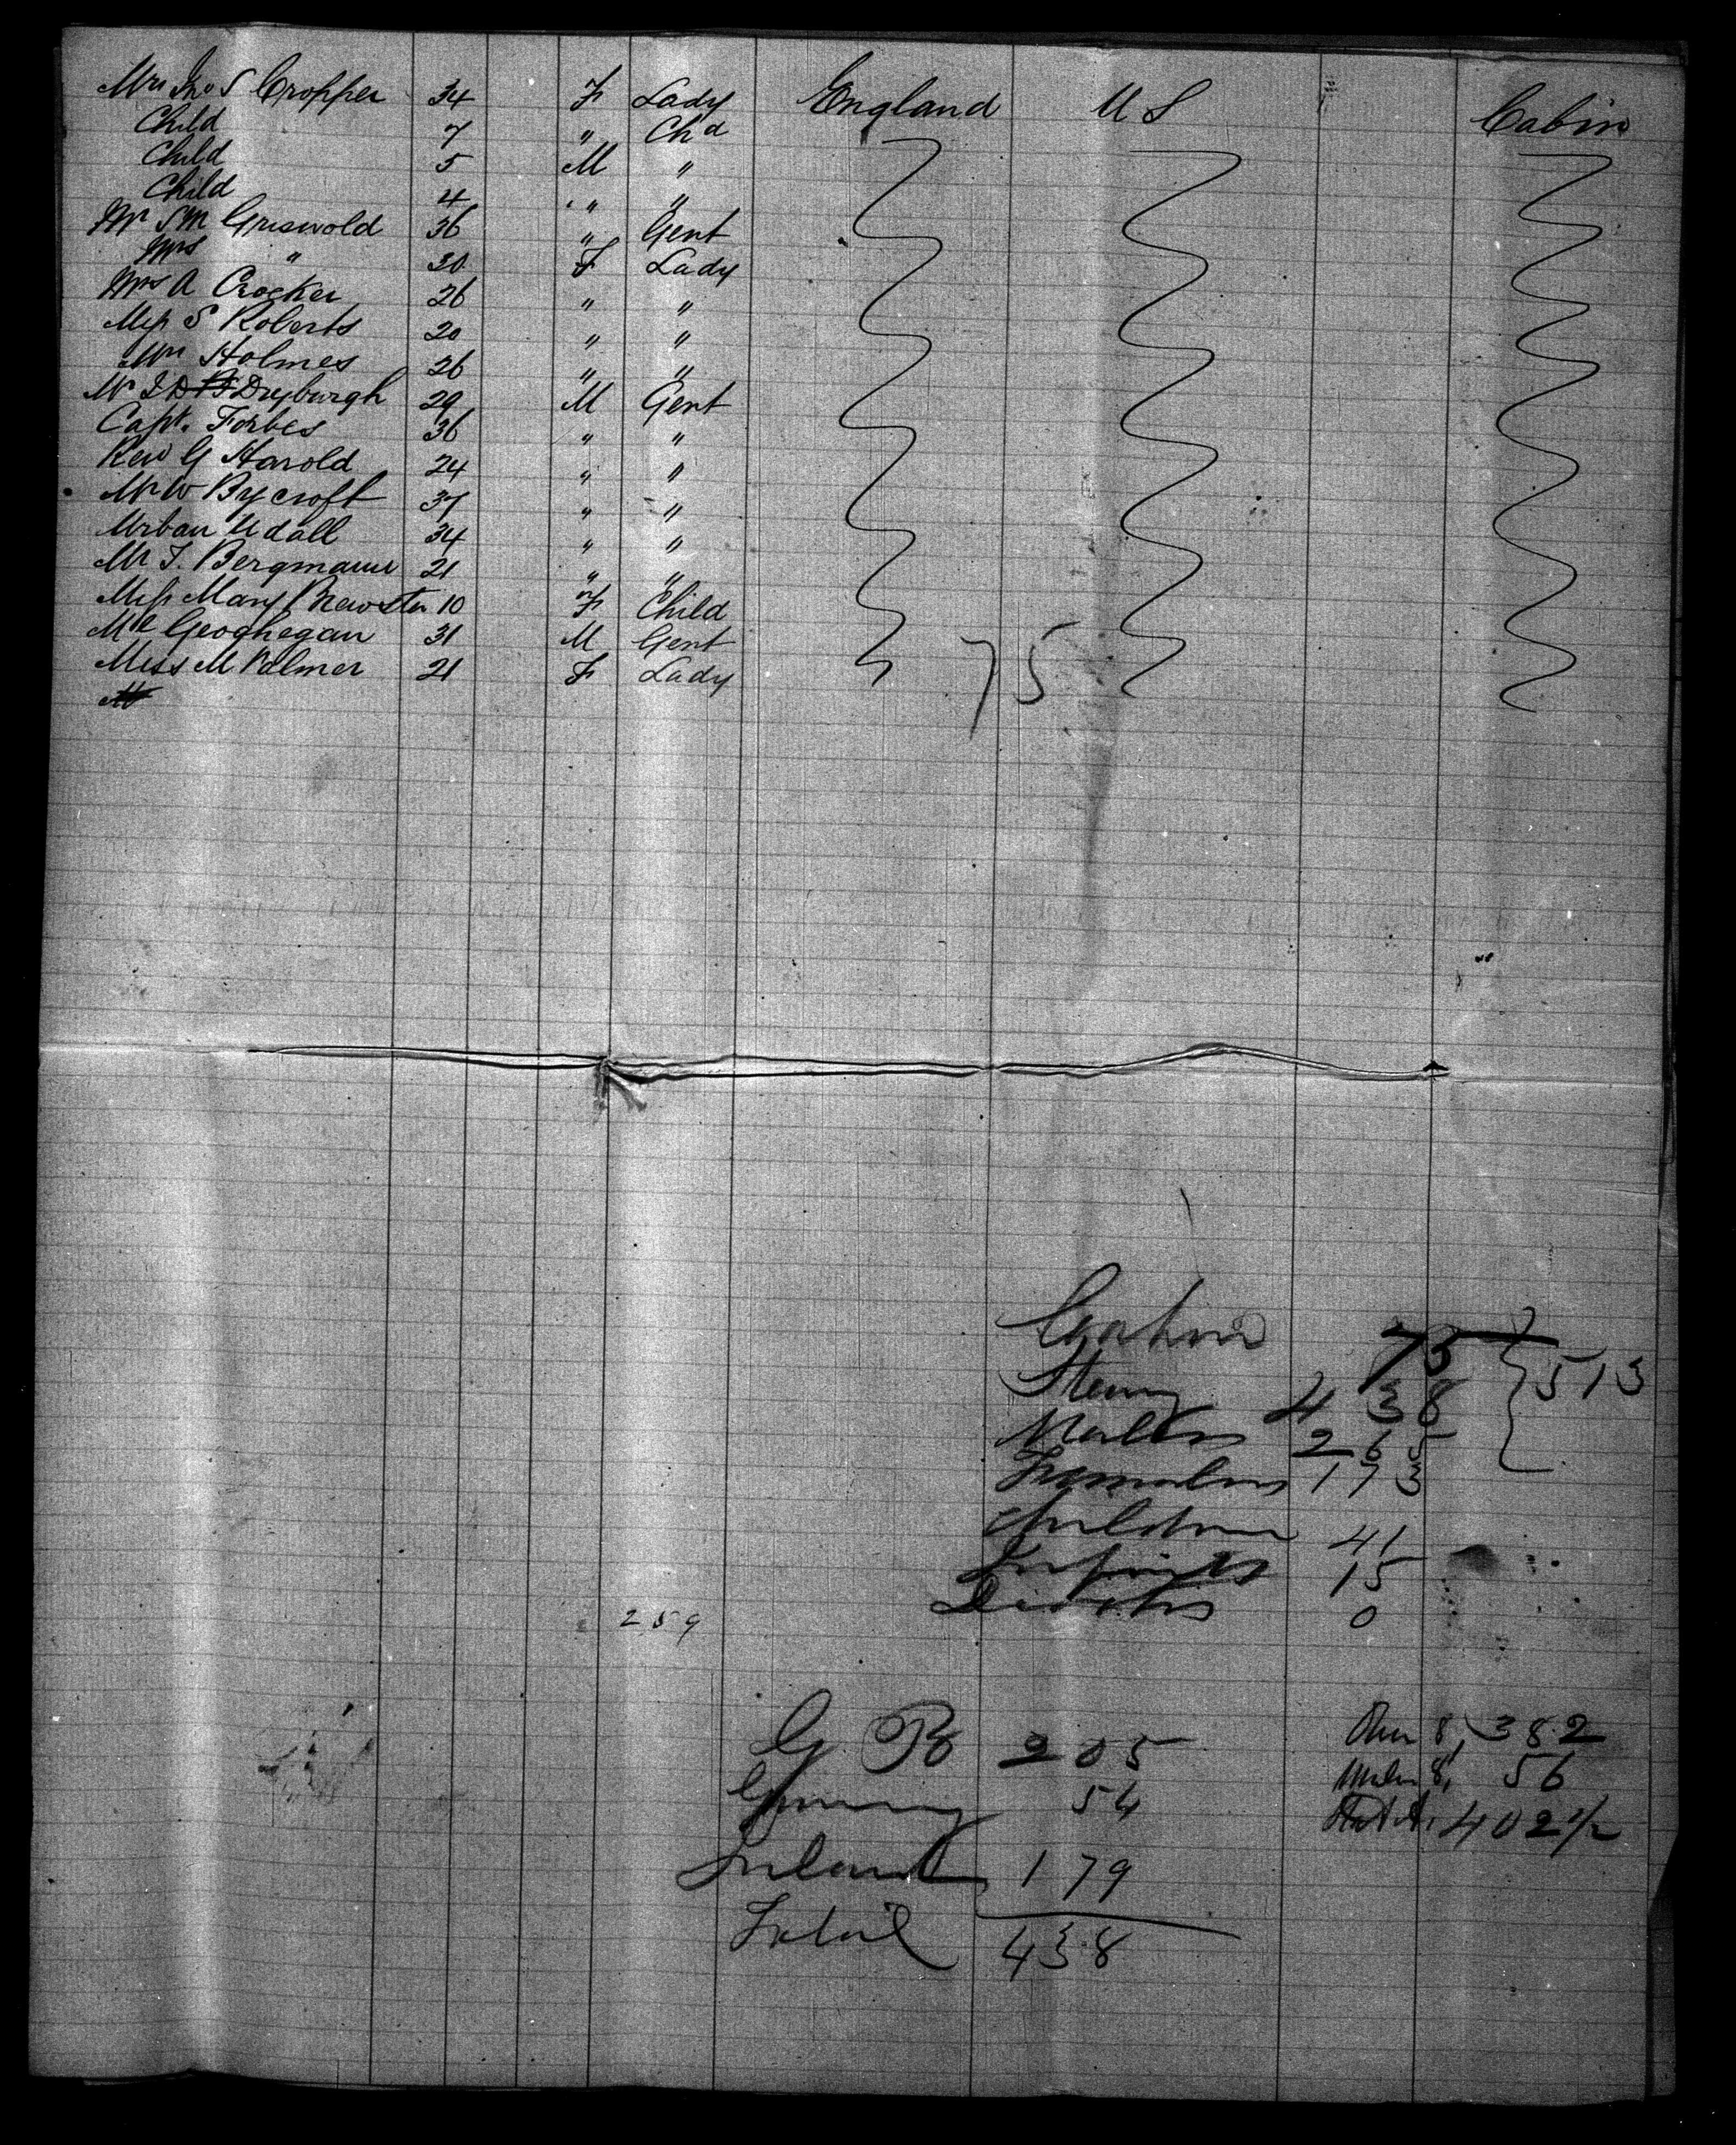 Mrs Jno S Cropper 34 F Lady England U S Cabin
Child 7 " Chd
Child 5 M "
Child 4 " "
Mr S M Griswold 36 " Gent
Mrs " 30 F Lady
Mrs A Crocker 26 " "
Miss S Roberts 20 " "
Mrs Holmes 26 " "
Mr J D Dryburgh 29 M Gent
Capt. Forbes 36 " "
Rev G Harold 24 " "
Mr W Bycroft 37 " "
Urban Udall 34 " "
Mr F. Bergmann 21 " "
Miss Mary Brewster 10 F Child
Mr Geoghegan 31 M Gent
Miss M Palmer 21 F Lady
75
Cabin 75
Steerg 438 } 513
Males 265
Females 173
Children 41
Infants 15
Deaths 0
259
G B 205
Germany 54
Ireland 179
Total 438
Over 8, 382
Under 8, 56
402 1/2